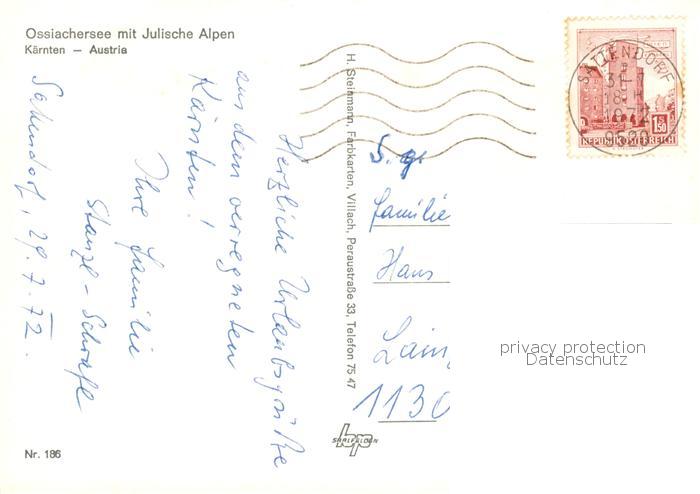 Ossiachersee mit Julische Alpen
Kärnten — Austria
Herzliche Urlaubsgrüße
aus dem verregneten
Kärnten!
Ihre Familie
Sattendorf, 29.7.72.
Nr. 186
H. Steinmann, Farbkarten, Villach, Peraustraße 33, Telefon 75 47
SAALFELDEN
bp
SATTENDORF
31.-7
18. H
1972
9520
1.50
REPUBLIK ÖSTERREICH
S. g.
Familie
Hans
1130
privacy protection
Datenschutz